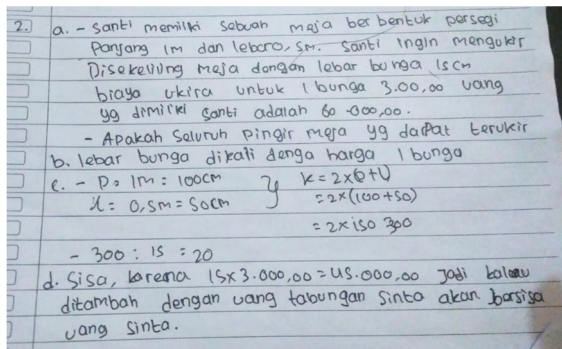 2. a. - Santi memiliki sebuah meja ber bentuk persegi
Panjang 1M dan lebar 0,5M. Santi ingin mengukir
Disekeliling meja dengan lebar bunga 15cm
biaya ukira untuk 1 bunga 3.00,00 uang
yg dimiliki Santi adalah 60.000,00.
- Apakah Seluruh Pingir meja yg dapat terukir
b. lebar bunga dikali denga harga 1 bunga
c. - P = 1M = 100cm } K = 2x(P+l)
l = 0,5m = 50cm = 2x(100+50)
= 2x 150 300
- 300 : 15 = 20
d. Sisa, karena 15x3.000,00 = 45.000,00 Jadi kalau
ditambah dengan uang tabungan Sinta akan barsisa
uang Sinta.